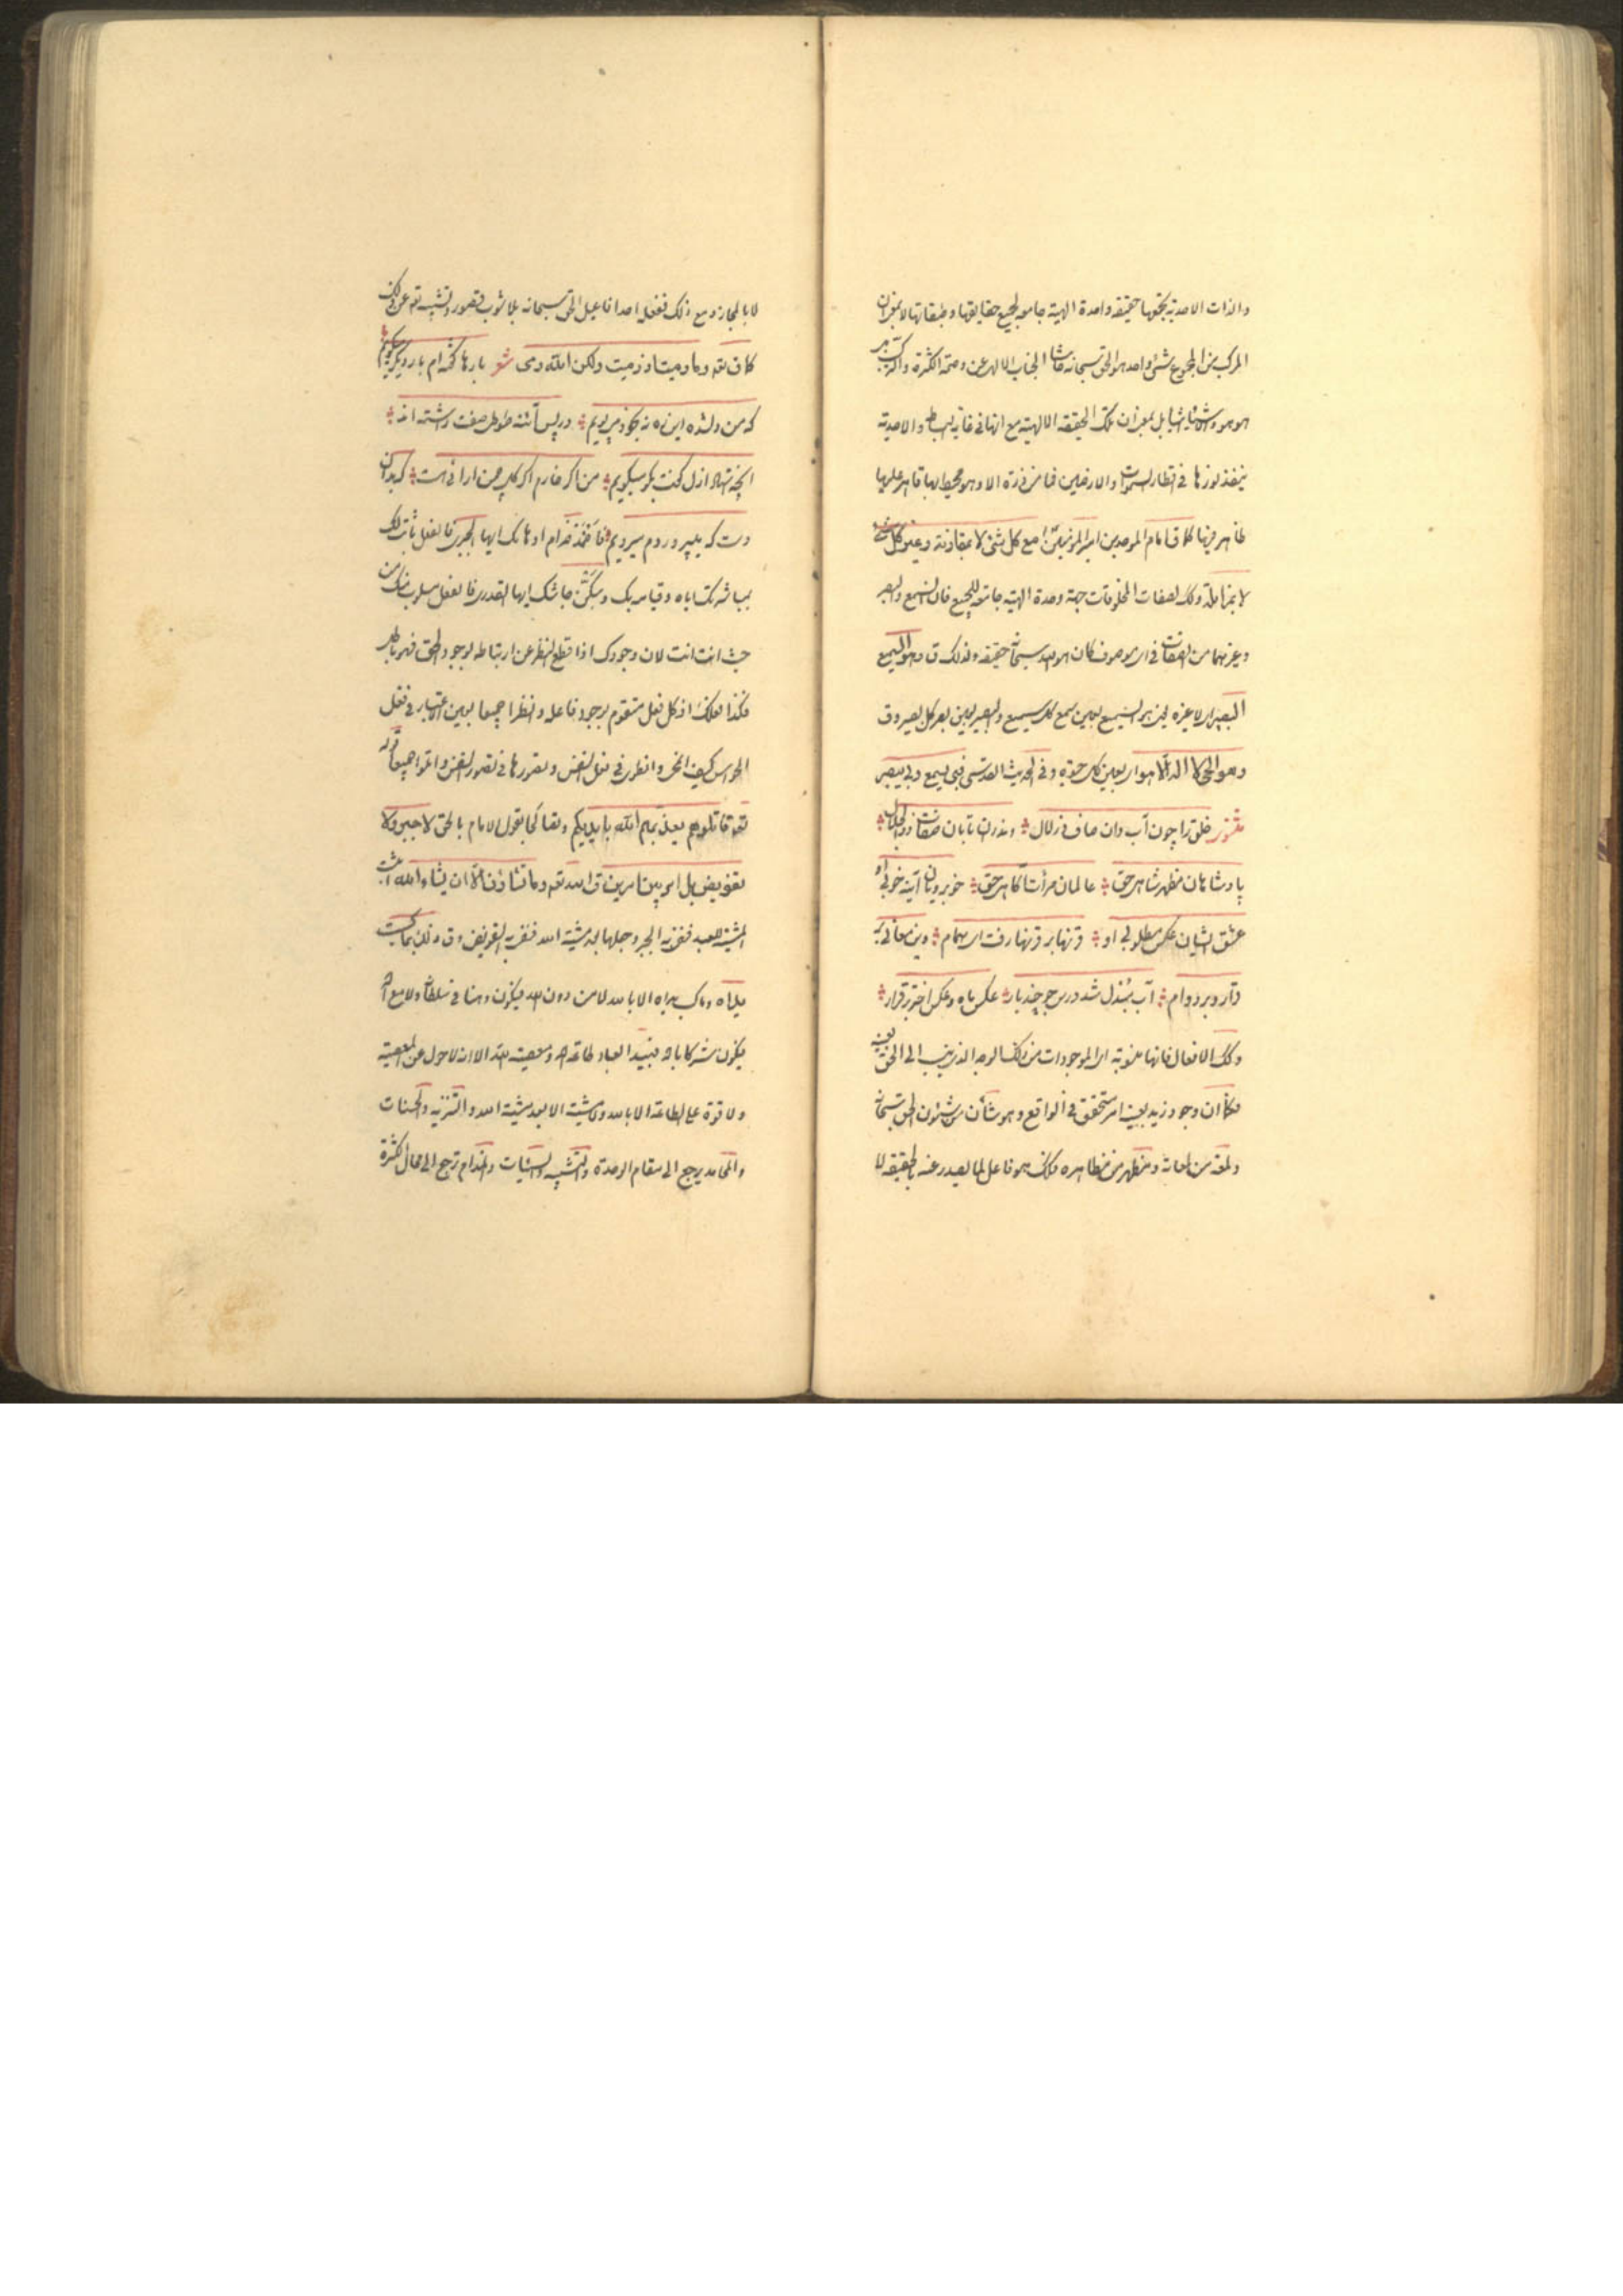 والذات الاحدیة یجمعها حقیقة واحدة الهیة جامعة لجمیع حقایقها وطبقاتها لا بمعنی ان
المرکب من المجموع شیء واحد هو الحق سبحانه حاشا الجناب الالهی عن وصمة الکثرة والترکیب
هو هو والاشیاء اشیاء بل بمعنی ان تلک الحقیقة الالهیة مع انها فی غایة البساطة والاحدیة
ینفذ نورها فی اقطار السموات والارضین فما من ذرة الا وهو محیط بها قاهر علیها
ظاهر فیها کما ق امام الموحدین امیر المؤمنین مع کل شیء لا بمقارنة وغیر کل شیء
لا بمزایلة وکک لصفات المخلوقات جهة وحدة الهیة جامعة للجمیع فان السمع والبصر
وغیرهما من الصفات فی ای موصوف کان هو لله سبحانه حقیقة ولذلک ق وهو السمیع
البصیر ای لا غیره فهو السمیع بعین سمع کل سمیع والبصیر بعین بصر کل بصیر وق
وهو الحی لا اله الا هو ای بعین کل حیوة وفی الحدیث القدسی فبی یسمع وبی یبصر
مثنوی خلق را چون آب دان صاف و زلال وندر آن تابان صفات ذوالجلال
پادشاهان مظهر شاهی حق عالمان مرآت آگاهی حق خوبرویان آینه خوبی او
عشق ایشان عکس مطلوبی او قرنها بر قرنها رفت ای همام وین معانی بر
قرار و بر دوام آب مبدل شد درین جو چند بار عکس ماه و عکس اختر برقرار
وکک الافعال فانها منسوبة الی الموجودات من ذلک الوجه الذی ینسب الی الحق بعینه
فکما ان وجود زید بعینه امر متحقق فی الواقع وهو شأن من شئون الحق سبحانه
ولمعة من لمعاته ومظهر من مظاهره فکذلک هو فاعل لما یصدر عنه بالحقیقة لا
لا بالمجاز ومع ذلک ففعله احد افاعیل الحق سبحانه بلا شوب قصور وتشبیه تعه عن ذلک
کما ق تعه وما رمیت اذ رمیت ولکن الله رمی شعر بارها گفته‌ام بار دیگر میگویم
که من دلشده این ره نه بخود میپویم در پس آینه طوطی صفتم داشته‌اند
آنچه استاد ازل گفت بگو میگویم من اگر خارم اگر گل چمن آرائی هست که بدان
دست که میپروردم میرویم فاخمد ضرام اوهامک ایها الجبری فالفعل ثابت لک
بمباشرتک ایاه وقیامه بک وسکّن جاشک ایها القدری فالفعل مسلوب منک من
حیث انت انت لان وجودک اذا قطع النظر عن ارتباطه بوجود الحق فهو باطل
فکذا فعلک اذ کل فعل متقوم بوجود فاعله وانظرا جمیعا بعین الاعتبار فی فعل
الحواس کیف انمحی وانطوی فی فعل النفس وتصورها فی تصور النفس واتلوا جمیعا قوله
تعه قاتلوهم یعذبهم الله بایدیکم وتصالحا بقول الامام بالحق لا جبر ولا
تفویض بل امر بین امرین ق الله تعه وما تشاؤن الا ان یشاء الله اثبت
المشیة للعبد فنفی به الجبر وجعلها بعد مشیة الله فنفی به التفویض وق ذلک بما کسبت
یداه وما کسب یداه الا بالله لا من دون الله فیکون وهنا فی سلطانه ولا مع الله
فیکون شرکا بالله فبید العباد طاعة الله ومعصیة الله الا انه لا حول عن المعصیة
ولا قوة علی الطاعة الا بالله ولا مشیة الا بعد مشیة الله والتنزیه والحسنات
والمحامد یرجع الی مقام الوحدة والتشبیه والسیئات والمذام ترجع الی محال الکثرة